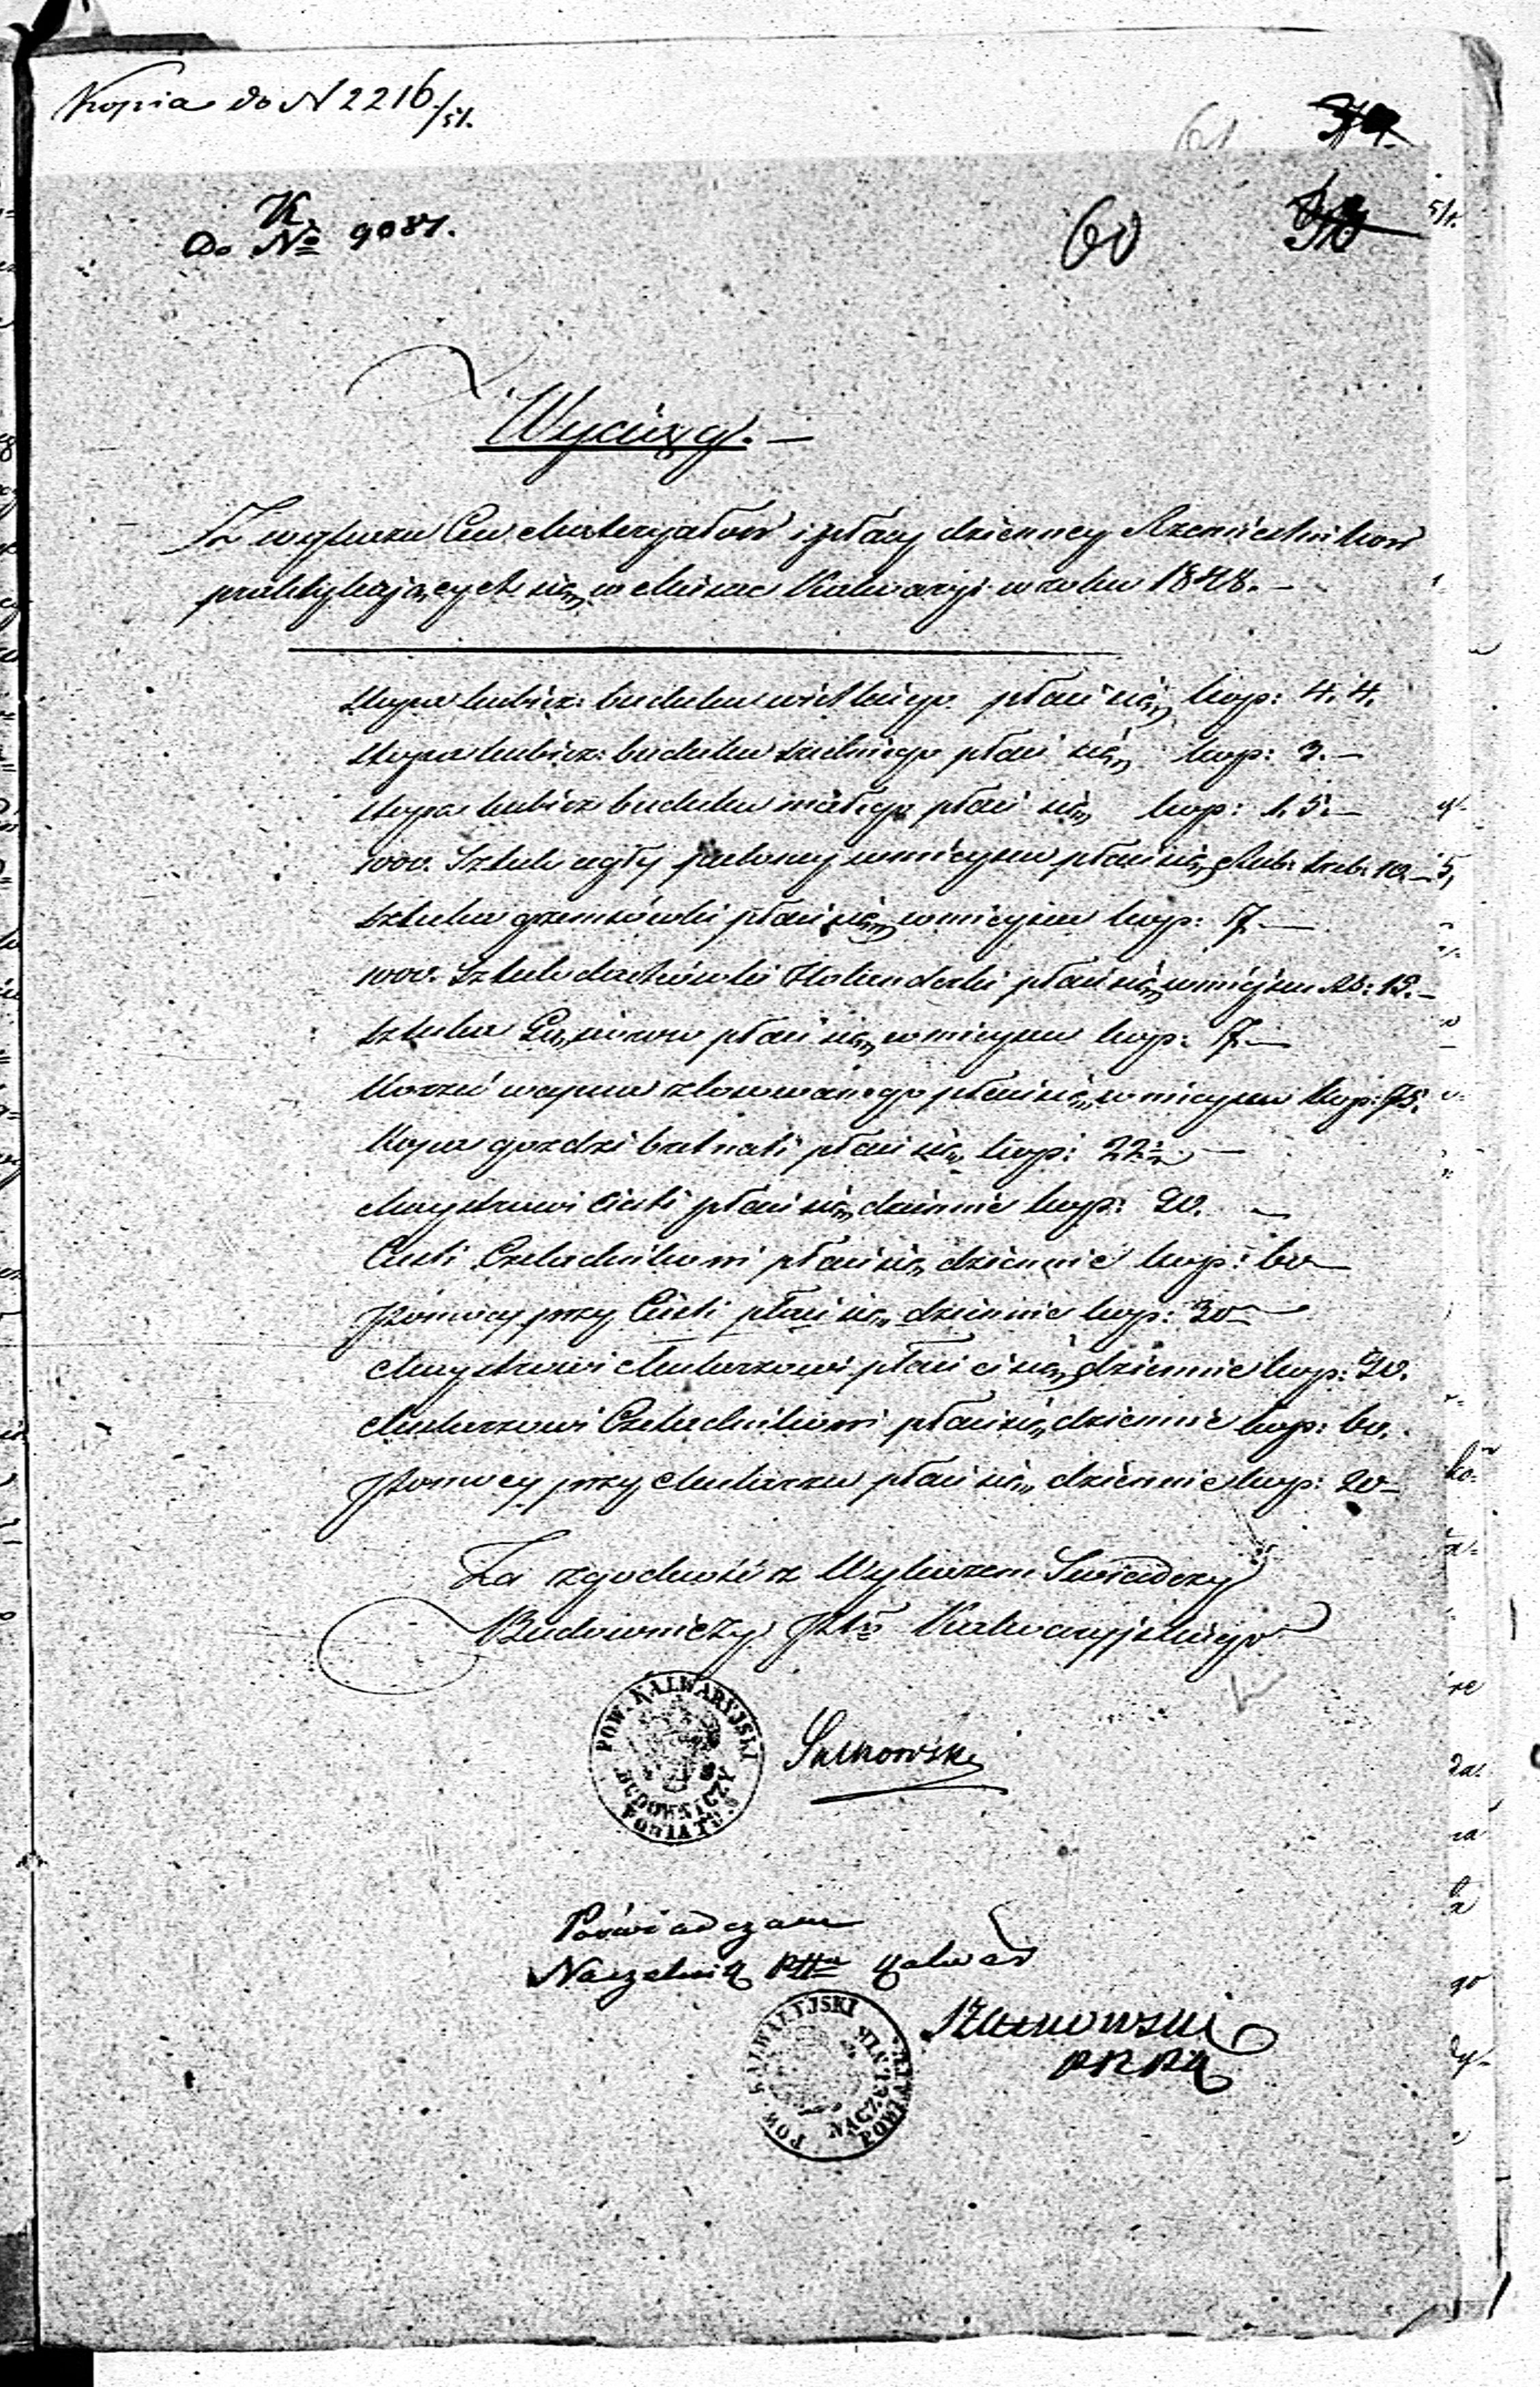 Kopia do N 2216/51.
K.
Do № 9087.
60
Wyciąg. —
Z wykazu Cen Materyałów i płacy dzienney Rzemieślników
praktykujących się w Mieście Kalwaryi w roku 1848. —
Stopa kubicz: budulcu wielkiego płaci się kop: 4.4.
Stopa kubicz: budulcu średniego płaci się kop: 3. —
Stopa kubicz budulcu małego płaci się kop: 1.5. —
1000. Sztuk cegły paloney w mieyscu płaci się Rub: sreb: 10. —
Sztuka gzemsówki płaci się w mieyscu kop: 7. —
1000. Sztuk dachówki Holenderki płaci się w mieyscu Rs: 12. —
Sztuka Gąsiorow płaci się w mieyscu kop: 7. —
Korzec wapna lasowanego płaci się w mieyscu kop: 75.
Kopa gozdzi bretnali płaci się kop: 22½. —
Maystrowi Cieśli płaci się dziennie kop: 90. —
Cieśli Czeladnikowi płaci się dziennie kop: 60 —
Pomocy przy Cieśli płaci się dziennie kop: 30 —
Maystrowi Mularzowi płaci się dziennie kop: 90.
Mularzowi Czeladnikowi płaci się dziennie kop: 60.
Pomocy przy Mularzu płaci się dziennie kop: 20 —
Za zgodność z Wykazem Swiadczy
Budowniczy Pttu Kalwaryjskiego
POW. KALWARYJSKI
BUDOWNICZY
POWIATU
Poświadczam
Naczelnik Pttu Kalwar
POW. KALWARYJSKI
NACZELNIK
POWIATU